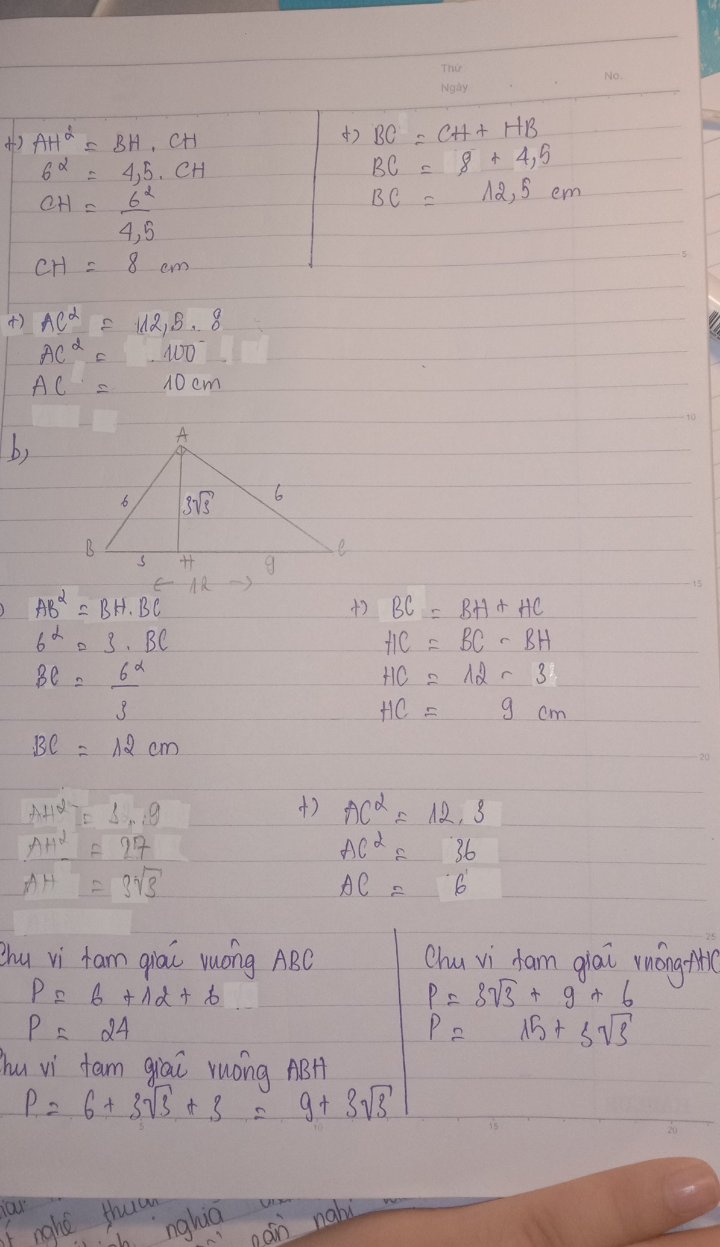 Thứ
Ngày
No.
+) AH² = BH . CH
6² = 4,5 . CH
CH = 6²/4,5
CH = 8 cm
+) BC = CH + HB
BC = 8 + 4,5
BC = 12,5 cm
+) AC² = 12,5 . 8
AC² = 100
AC = 10 cm
b,
A
6
3√3
6
B
3
H
9
C
← 12 →
) AB² = BH . BC
6² = 3 . BC
BC = 6²/3
BC = 12 cm
+) BC = BH + HC
HC = BC - BH
HC = 12 - 3
HC = 9 cm
AH² = 3 . 9
AH² = 27
AH = 3√3
+) AC² = 12 . 3
AC² = 36
AC = 6
Chu vi tam giaí vuông ABC
P = 6 + 12 + 6
P = 24
Chu vi tam giaí vuông ABH
P = 6 + 3√3 + 3 = 9 + 3√3
Chu vi tam giaí vuông AHC
P = 3√3 + 9 + 6
P = 15 + 3√3
5
10
15
20
25
5
10
15
20
nghê thuâ
nghĩa